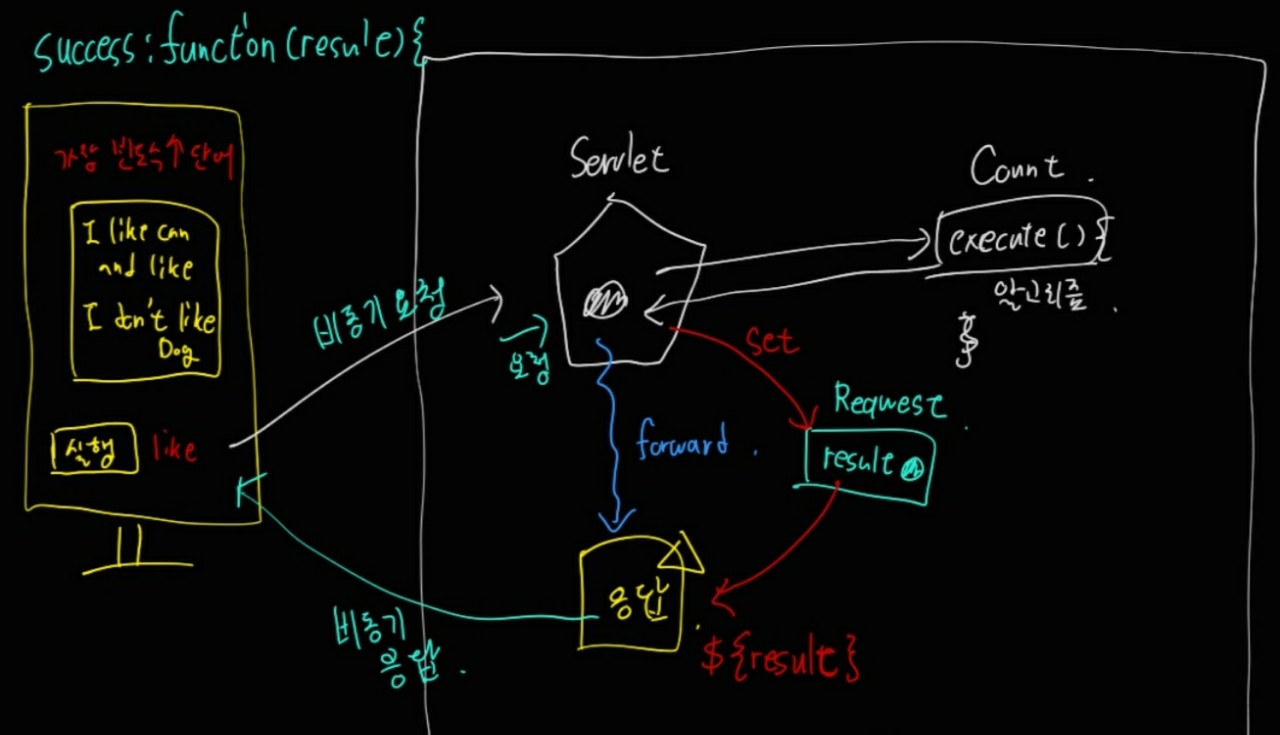 success : function (result) {
가장 빈도수↑ 단어
I like can
and like
I don't like
Dog
실행
like
비동기 요청
요청
Servlet
Count .
execute() {
알고리즘 .
}
set
Request .
result
forward .
응답 .
${result}
비동기
응답 .